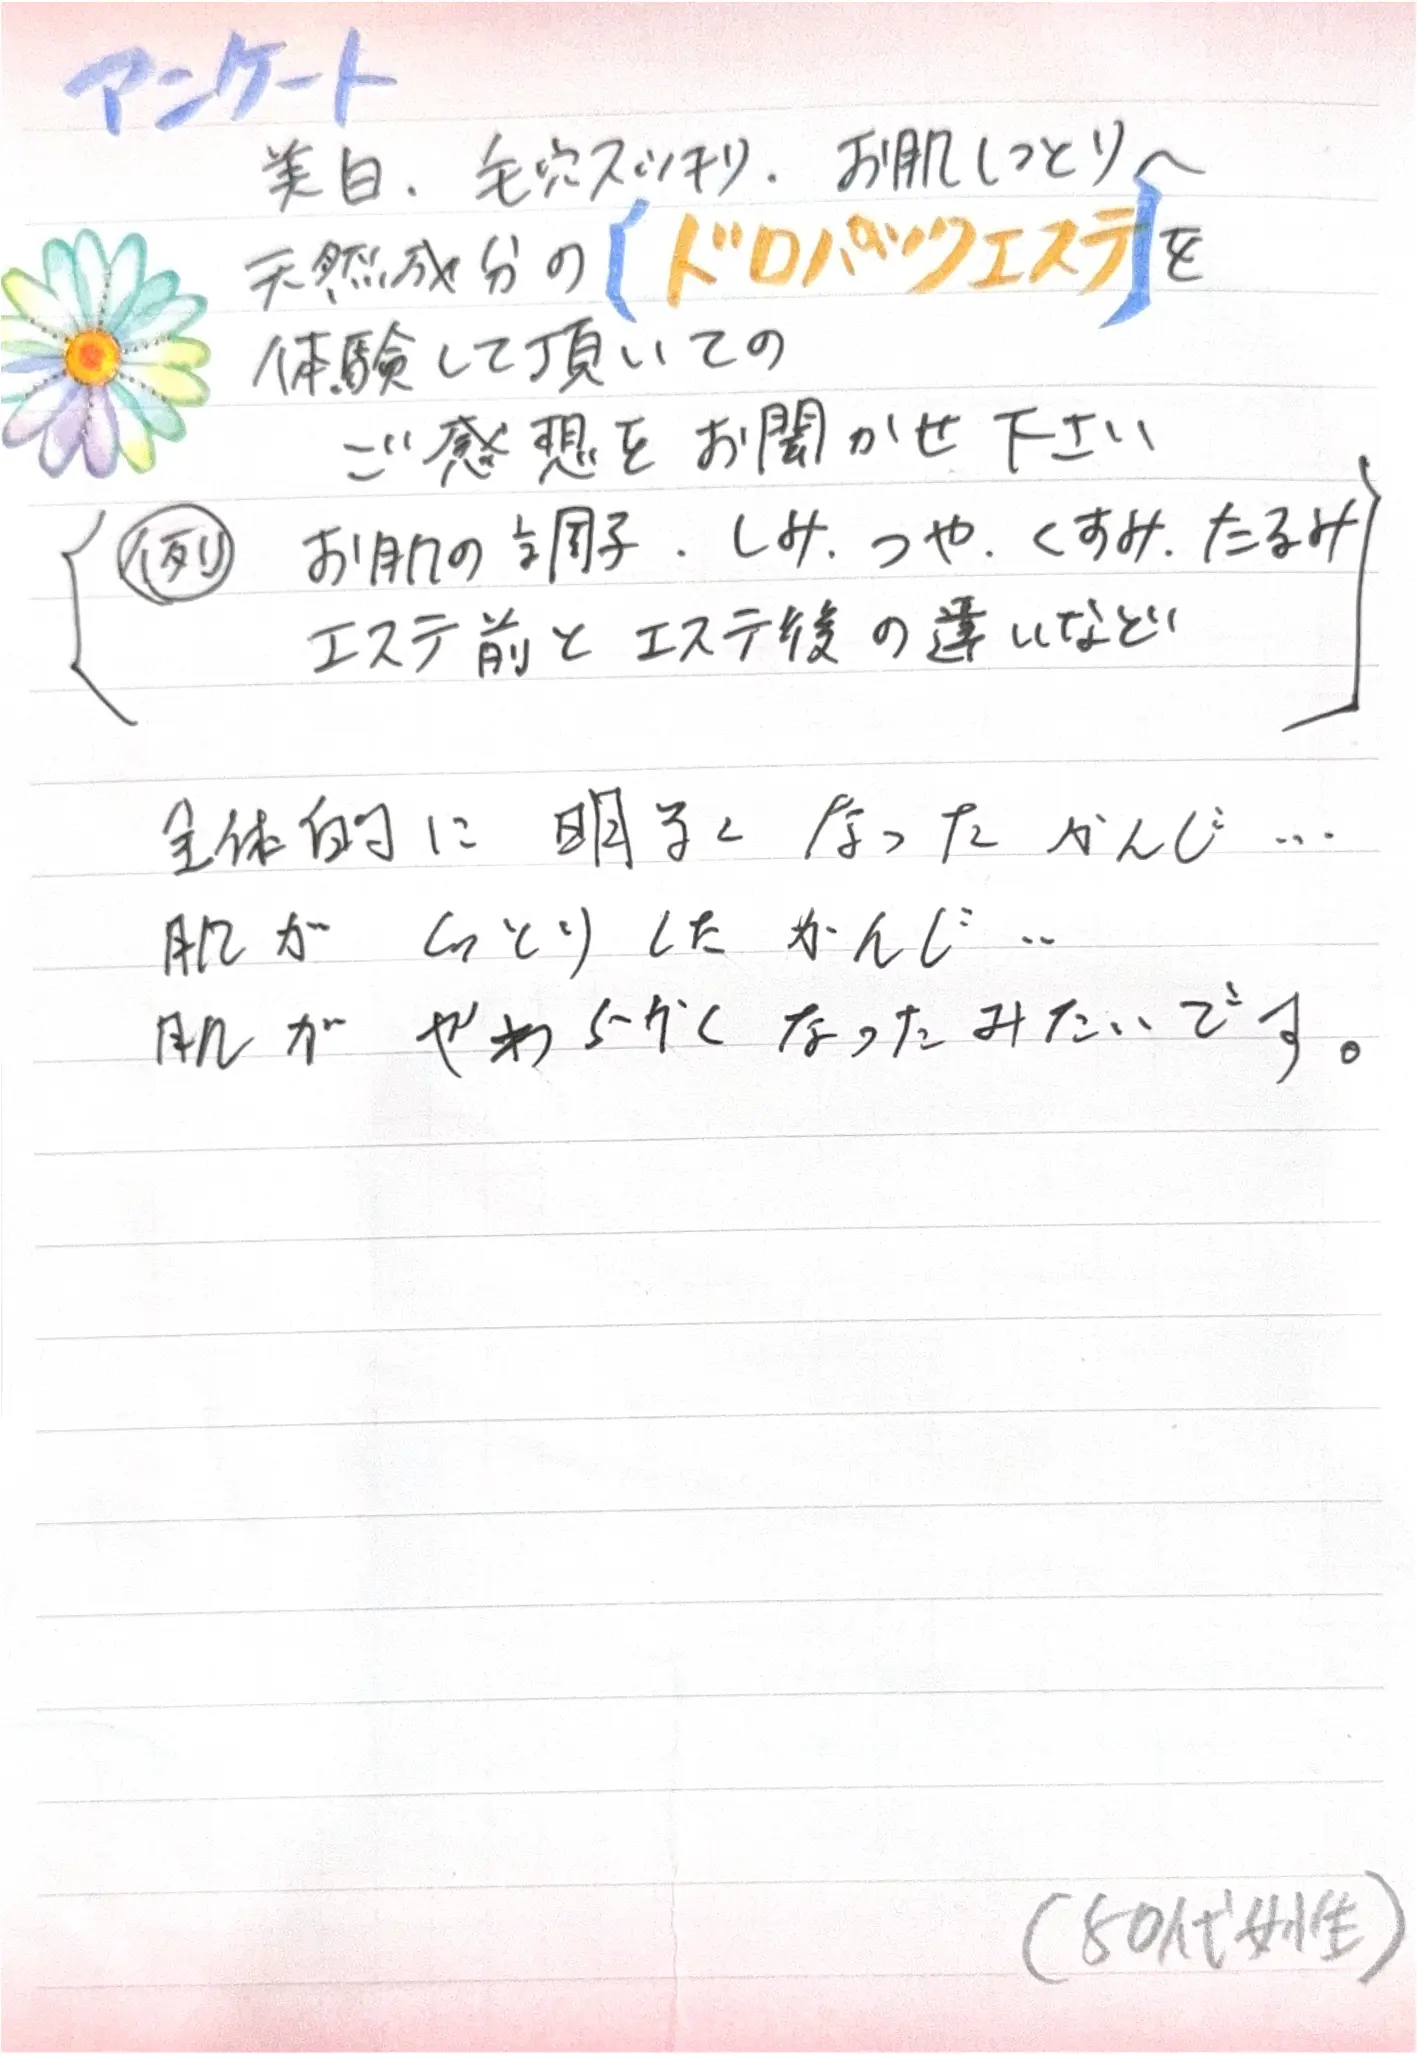 アンケート
美白．毛穴スッキリ．お肌しっとりへ
天然成分の【ドロパックエステ】を
体験して頂いての
ご感想をお聞かせ下さい
例 お肌の調子．しみ．つや．くすみ．たるみ
エステ前とエステ後の違いなど
全体的に 明るく なった かんじ…
肌が しっとり した かんじ‥
肌が やわらかく なったみたいです。
(50代女性)